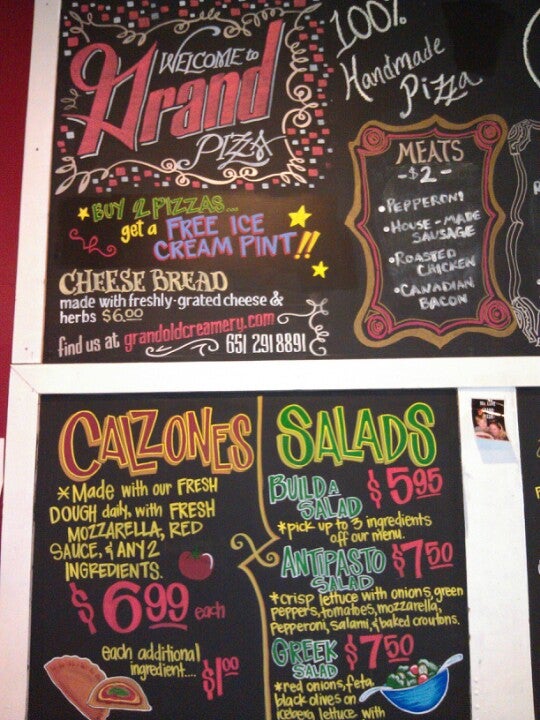 WELCOME to
Grand
PIZZA
100%
Handmade
Pizza
BUY 2 PIZZAS...
get a FREE ICE
CREAM PINT!!
CHEESE BREAD
made with freshly-grated cheese &
herbs $6.00
find us at grandoldcreamery.com
651 291 8891
MEATS
-$2-
•PEPPERONI
•HOUSE-MADE
SAUSAGE
•ROASTED
CHICKEN
•CANADIAN
BACON
CALZONES
*MADE WITH OUR FRESH
DOUGH daily, with FRESH
MOZZARELLA, RED
SAUCE, & ANY 2
INGREDIENTS.
$6.99 each
each additional
ingredient.... $1.00
SALADS
BUILD A
SALAD $5.95
*pick up to 3 ingredients
off our menu.
ANTIPASTO
SALAD $7.50
*crisp lettuce with onions, green
peppers, tomatoes, mozzarella,
pepperoni, salami, & baked croutons.
GREEK
SALAD $7.50
*red onions, feta,
black olives on
iceberg lettuce with